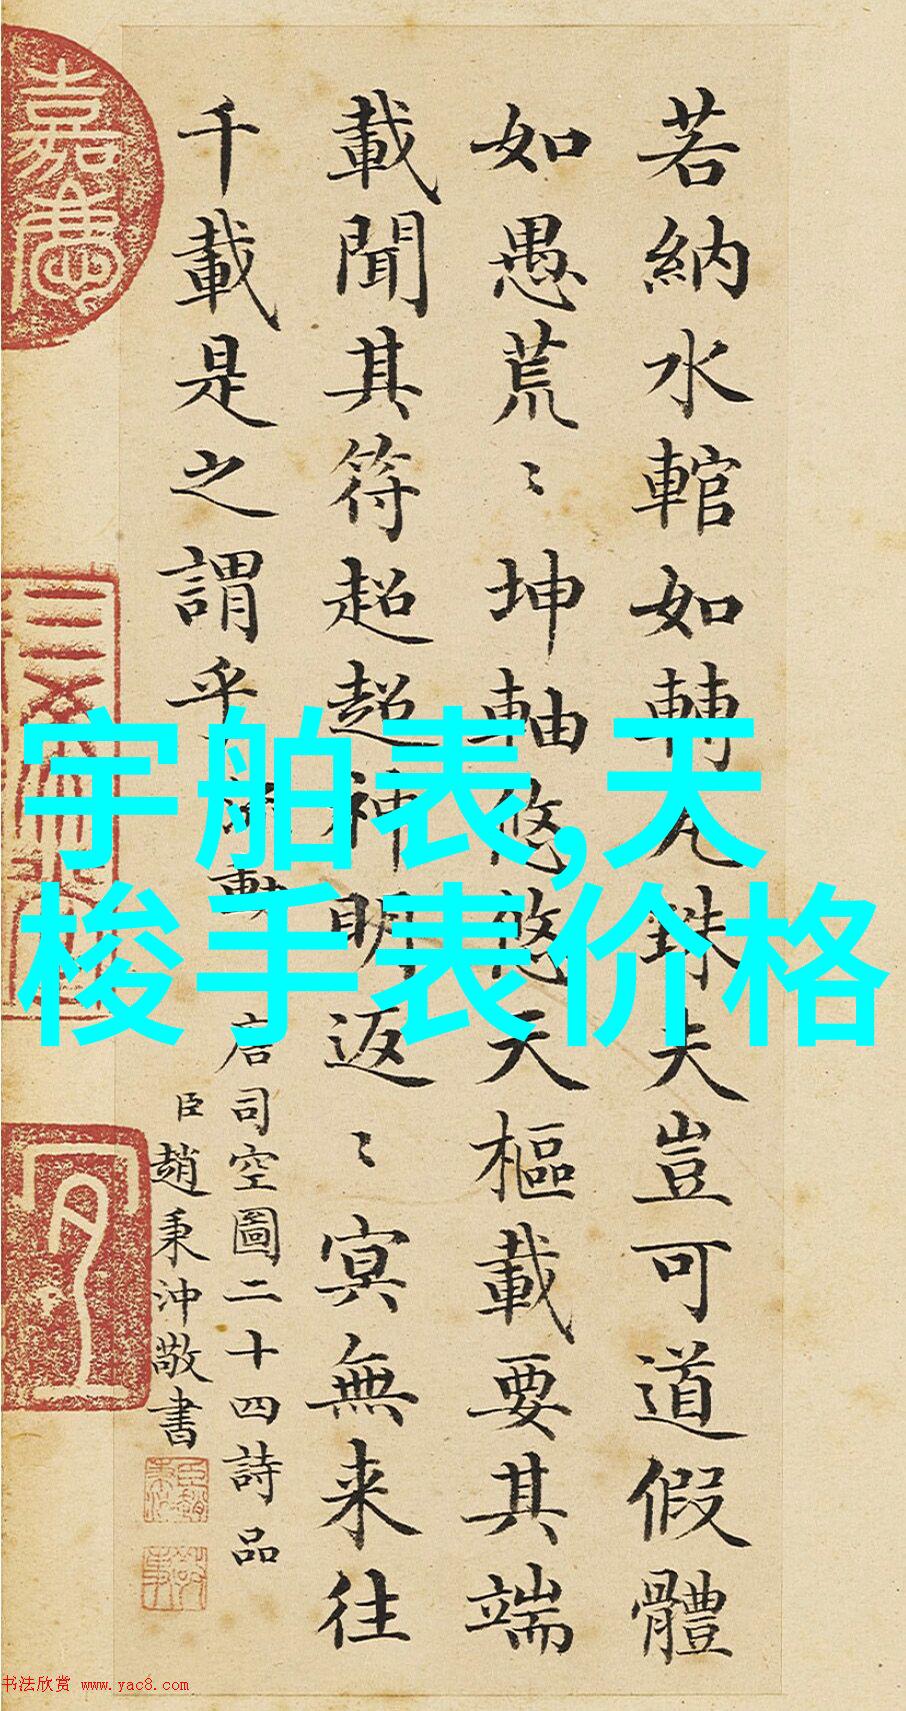 若納水輨如轉丸珠夫豈可道假體
如愚荒〻坤軸悠悠天樞載要其端
載聞其符超超神明返〻冥無来往
千載是之謂乎 流動
唐司空圖二十四詩品
臣趙秉沖敬書
嘉慶
宇舶表,天
梭手表价格
书法欣赏 www.yac8.com